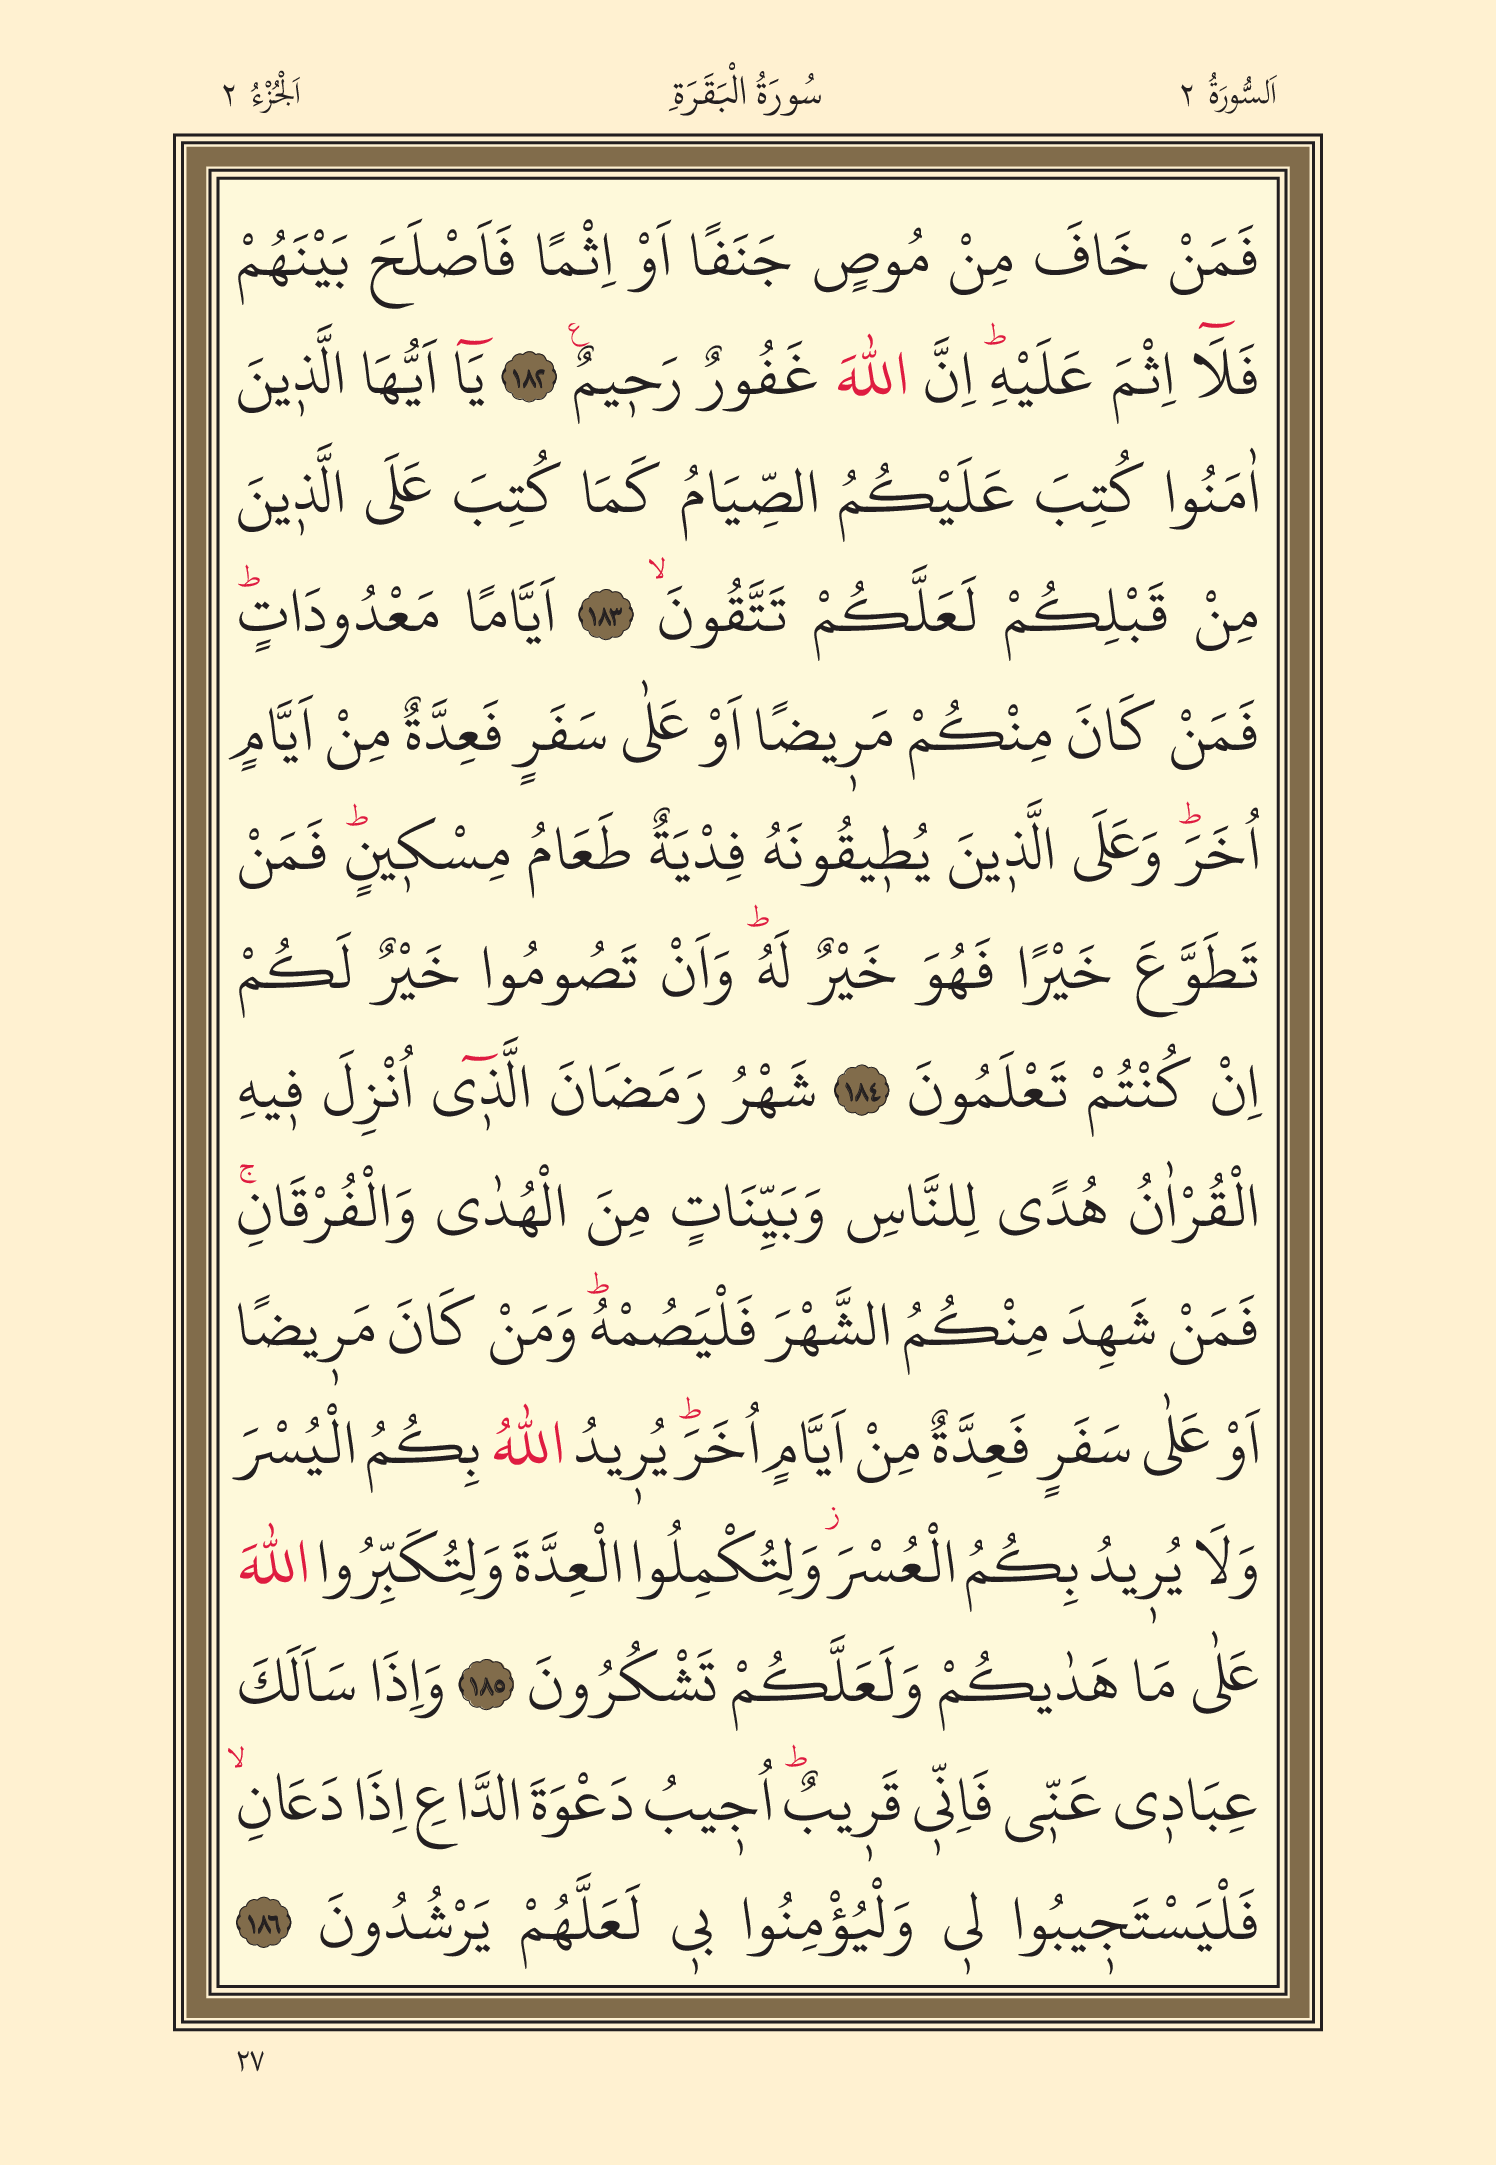 اَلسُّورَةُ ٢ سُورَةُ الْبَقَرَةِ اَلْجُزْءُ ٢
فَمَنْ خَافَ مِنْ مُوصٍ جَنَفًا اَوْ اِثْمًا فَاَصْلَحَ بَيْنَهُمْ
فَلَٓا اِثْمَ عَلَيْهِۜ اِنَّ اللّٰهَ غَفُورٌ رَح۪يمٌ۟ ﴿١٨٢﴾ يَٓا اَيُّهَا الَّذ۪ينَ
اٰمَنُوا كُتِبَ عَلَيْكُمُ الصِّيَامُ كَمَا كُتِبَ عَلَى الَّذ۪ينَ
مِنْ قَبْلِكُمْ لَعَلَّكُمْ تَتَّقُونَۙ ﴿١٨٣﴾ اَيَّامًا مَعْدُودَاتٍۜ
فَمَنْ كَانَ مِنْكُمْ مَر۪يضًا اَوْ عَلٰى سَفَرٍ فَعِدَّةٌ مِنْ اَيَّامٍ
اُخَرَۜ وَعَلَى الَّذ۪ينَ يُط۪يقُونَهُ فِدْيَةٌ طَعَامُ مِسْك۪ينٍۜ فَمَنْ
تَطَوَّعَ خَيْرًا فَهُوَ خَيْرٌ لَهُۜ وَاَنْ تَصُومُوا خَيْرٌ لَكُمْ
اِنْ كُنْتُمْ تَعْلَمُونَ ﴿١٨٤﴾ شَهْرُ رَمَضَانَ الَّذ۪ٓى اُنْزِلَ ف۪يهِ
الْقُرْاٰنُ هُدًى لِلنَّاسِ وَبَيِّنَاتٍ مِنَ الْهُدٰى وَالْفُرْقَانِۚ
فَمَنْ شَهِدَ مِنْكُمُ الشَّهْرَ فَلْيَصُمْهُۜ وَمَنْ كَانَ مَر۪يضًا
اَوْ عَلٰى سَفَرٍ فَعِدَّةٌ مِنْ اَيَّامٍ اُخَرَۜ يُر۪يدُ اللّٰهُ بِكُمُ الْيُسْرَ
وَلَا يُر۪يدُ بِكُمُ الْعُسْرَۘ وَلِتُكْمِلُوا الْعِدَّةَ وَلِتُكَبِّرُوا اللّٰهَ
عَلٰى مَا هَدٰيكُمْ وَلَعَلَّكُمْ تَشْكُرُونَ ﴿١٨٥﴾ وَاِذَا سَاَلَكَ
عِبَاد۪ى عَنّ۪ى فَاِنّ۪ي قَر۪يبٌۜ اُج۪يبُ دَعْوَةَ الدَّاعِ اِذَا دَعَانِۙ
فَلْيَسْتَج۪يبُوا ل۪ي وَلْيُؤْمِنُوا ب۪ي لَعَلَّهُمْ يَرْشُدُونَ ﴿١٨٦﴾
٢٧